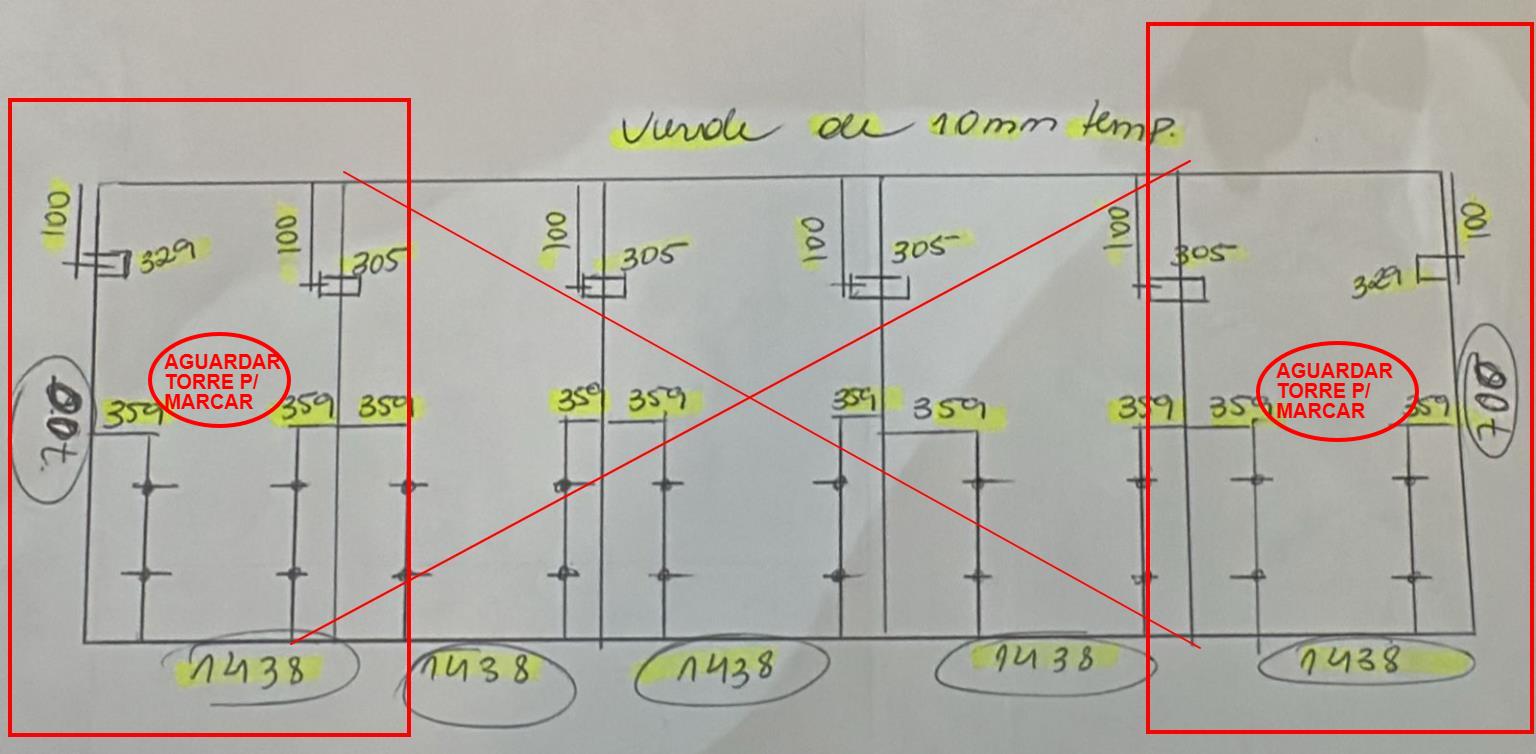 Verde de 10mm temp.
100 100 100 100 100 100
329 305 305 305 305 329
AGUARDAR
TORRE P/
MARCAR
AGUARDAR
TORRE P/
MARCAR
700 359 359 359 359 359 359 359 359 359 359 700
1438 1438 1438 1438 1438